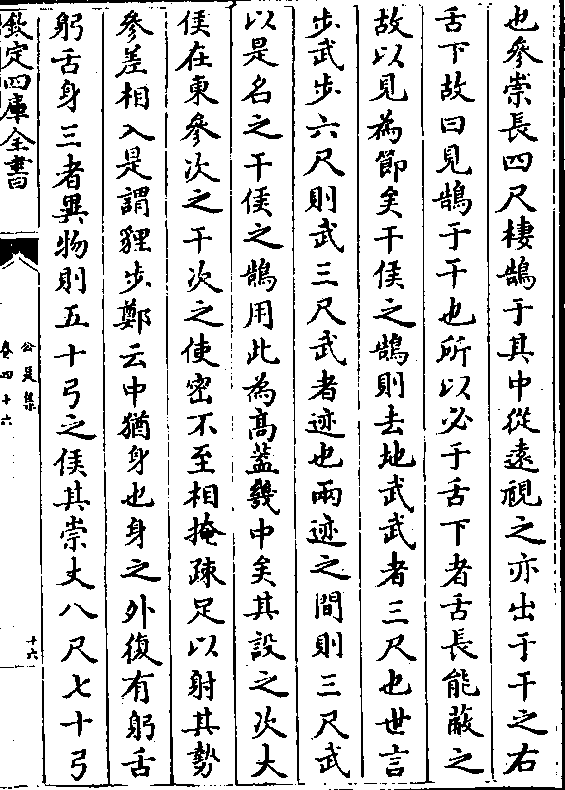 也參崇長四尺棲鵠于其中從遠視之亦出于干之右
舌下故曰見鵠于干也所以必于舌下者舌長能蔽之
故以見為節矣干侯之鵠則去地武武者三尺也世言
步武步六尺則武三尺武者迹也兩迹之間則三尺武
以是名之干侯之鵠用此為髙蓋㡬中矣其設之次大
侯在東參次之干次之使密不至相掩疎足以射其勢
參差相入是謂貍步鄭云中猶身也身之外復有躬舌
躬舌身三者異物則五十弓之侯其崇丈八尺七十弓
欽定四庫全書
公是集
卷四十六
十六